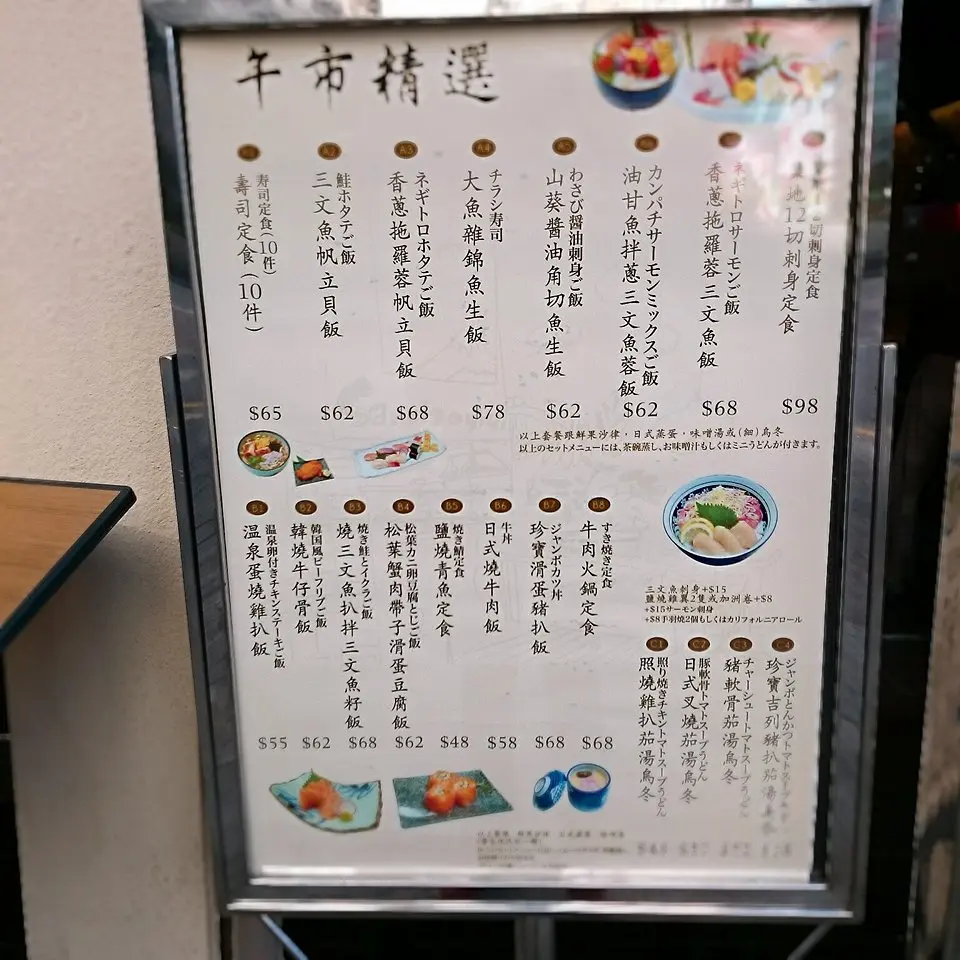 午市精選
A1
寿司定食(10件)
壽司定食(10件)
$65
A2
鮭ホタテご飯
三文魚帆立貝飯
$62
A3
ネギトロホタテご飯
香蔥拖羅蓉帆立貝飯
$68
A4
チラシ寿司
大魚雜錦魚生飯
$78
A5
わさび醬油刺身ご飯
山葵醬油角切魚生飯
$62
カンパチサーモンミックスご飯
油甘魚拌蔥三文魚蓉飯
$62
ネギトロサーモンご飯
香蔥拖羅蓉三文魚飯
$68
切刺身定食
地12切刺身定食
$98
以上套餐跟鮮果沙律,日式蒸蛋,味噌湯或(細)烏冬
以上のセットメニューには、茶碗蒸し、お味噌汁もしくはミニうどんが付きます。
B1
温泉卵付きチキンステーキご飯
溫泉蛋燒雞扒飯
$55
B2
韓国風ビーフリブご飯
韓燒牛仔骨飯
$62
B3
焼き鮭とイクラご飯
燒三文魚扒拌三文魚籽飯
$68
B4
松葉カニ卵豆腐とじご飯
松葉蟹肉帶子滑蛋豆腐飯
$62
B5
焼き鯖定食
鹽燒青魚定食
$48
B6
牛丼
日式燒牛肉飯
$58
B7
ジャンボカツ丼
珍寶滑蛋豬扒飯
$68
B8
すき焼き定食
牛肉火鍋定食
$68
三文魚刺身+$15
鹽燒雞翼2隻或加洲卷+$8
+$15サーモン刺身
+$8手羽焼2個もしくはカリフォルニアロール
C1
照り焼きチキントマトスープうどん
照燒雞扒茄湯烏冬
C2
豚軟骨トマトスープうどん
日式叉燒茄湯烏冬
C3
チャーシュートマトスープうどん
豬軟骨茄湯烏冬
C4
ジャンボとんかつトマトスープ
珍寶吉列豬扒茄湯烏冬